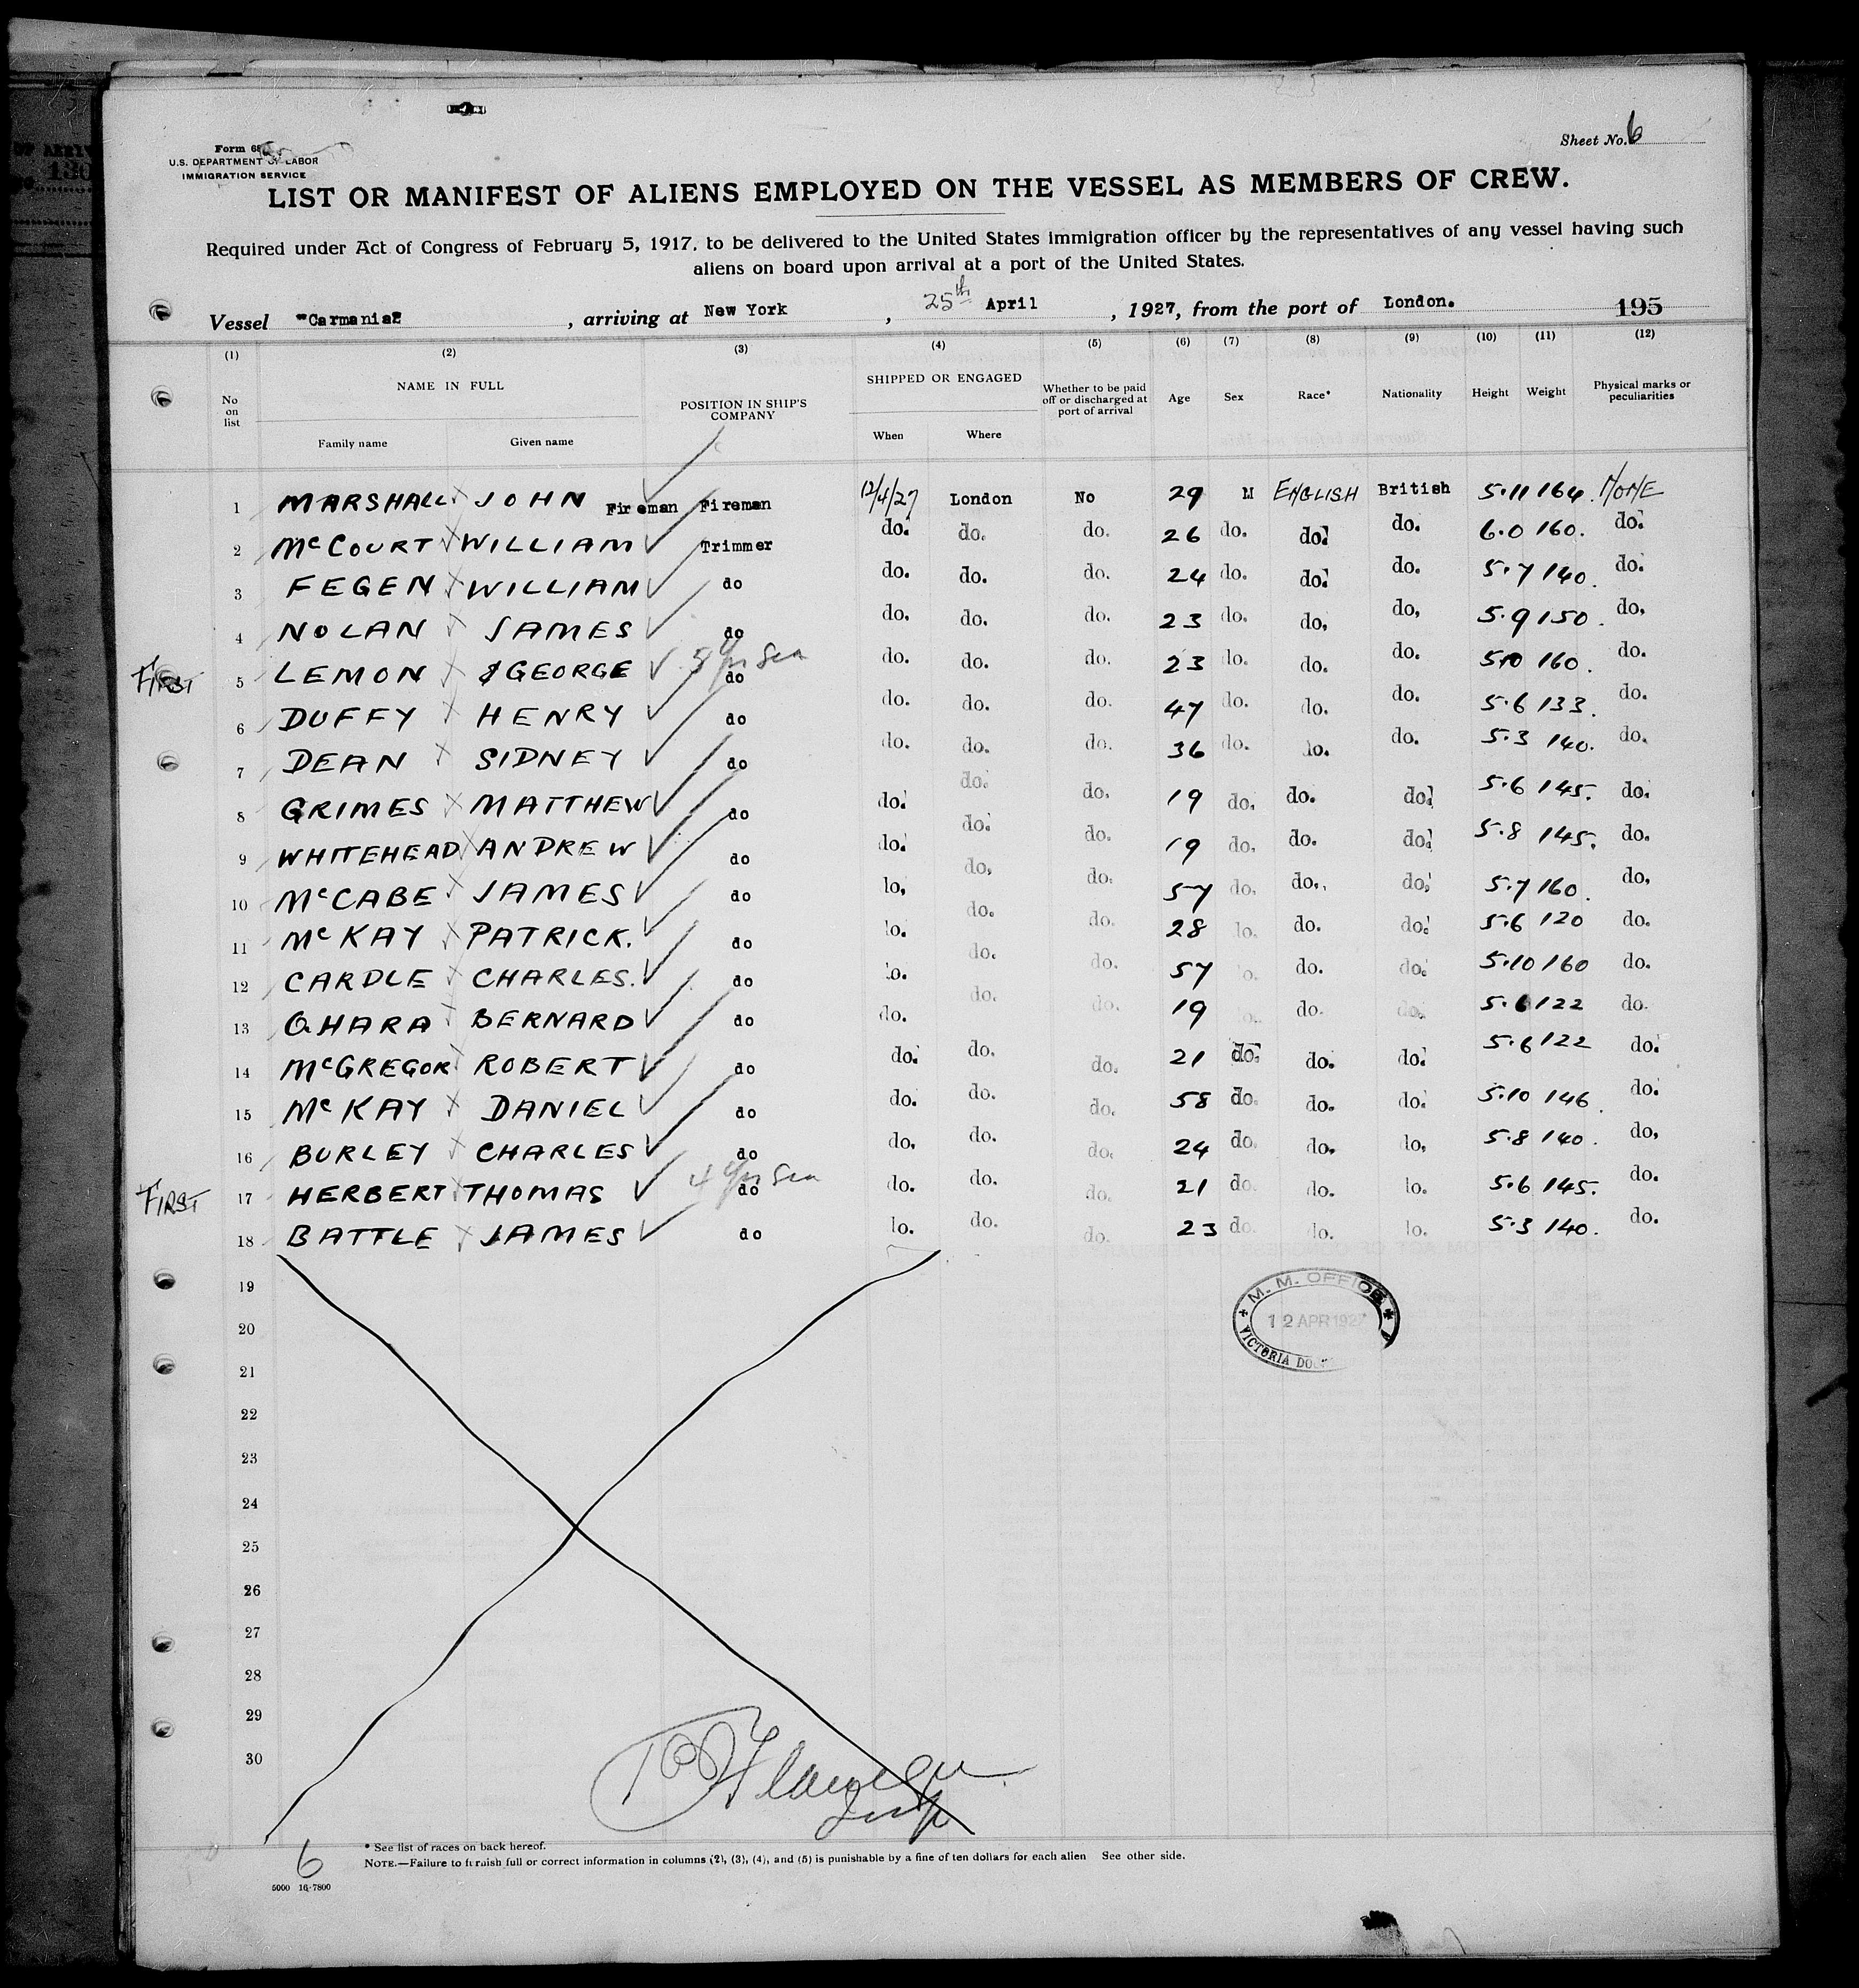 Sheet No. 6
U.S. DEPARTMENT OF LABOR
IMMIGRATION SERVICE
LIST OR MANIFEST OF ALIENS EMPLOYED ON THE VESSEL AS MEMBERS OF CREW.
Required under Act of Congress of February 5, 1917, to be delivered to the United States immigration officer by the representatives of any vessel having such
aliens on board upon arrival at a port of the United States.
Vessel "Carmania", arriving at New York, 25th April, 1927, from the port of London. 195
(1) (2) (3) (4) (5) (6) (7) (8) (9) (10) (11) (12)
No on list NAME IN FULL Family name Given name POSITION IN SHIP'S COMPANY SHIPPED OR ENGAGED When Where Whether to be paid off or discharged at port of arrival Age Sex Race* Nationality Height Weight Physical marks or peculiarities
1 MARSHALL JOHN Fireman Fireman 12/4/27 London No 29 M ENGLISH British 5.11 164. NONE
2 McCOURT WILLIAM Trimmer do. do. do. 26 do. do. do. 6.0 160. do.
3 FEGEN WILLIAM do do. do. do. 24 do. do. do. 5.7 140. do.
4 NOLAN JAMES do do. do. do. 23 do. do, do, 5.9 150. do,
FIRST 5 LEMON GEORGE do do. do. do. 23 do. do. do. 5.10 160. do.
6 DUFFY HENRY do do. do. do. 47 do. do. do. 5.6 133. do.
7 DEAN SIDNEY do do. do. do. 36 do. do. do. 5.3 140. do.
8 GRIMES MATTHEW do do. do. do. 19 do. do. do. 5.6 145. do.
9 WHITEHEAD ANDREW do do. do. do. 19 do. do. do. 5.8 145. do.
10 McCABE JAMES do do, do, do. 57 do. do., do. 5.7 160. do,
11 McKAY PATRICK. do do. do. do. 28 do. do. do. 5.6 120 do.
12 CARDLE CHARLES. do do. do. do. 57 do. do. do. 5.10 160 do.
13 O.HARA BERNARD do do. do. do. 19 do. do. do. 5.6 122 do.
14 McGREGOR ROBERT do do. do. do. 21 do. do. do. 5.6 122 do.
15 McKAY DANIEL do do. do. do. 58 do. do. do. 5.10 146. do.
16 BURLEY CHARLES do do, do. do. 24 do. do, do, 5.8 140. do,
FIRST 17 HERBERT THOMAS do do. do. do. 21 do. do. do. 5.6 145. do.
18 BATTLE JAMES do do. do. do. 23 do. do. do. 5.3 140. do.
19
M. M. OFFICE
20
12 APR 1927
21
VICTORIA
22
23
24
25
26
27
28
29
30
6
* See list of races on back hereof.
NOTE.—Failure to furnish full or correct information in columns (2), (3), (4), and (5) is punishable by a fine of ten dollars for each alien See other side.
5000 16-7800